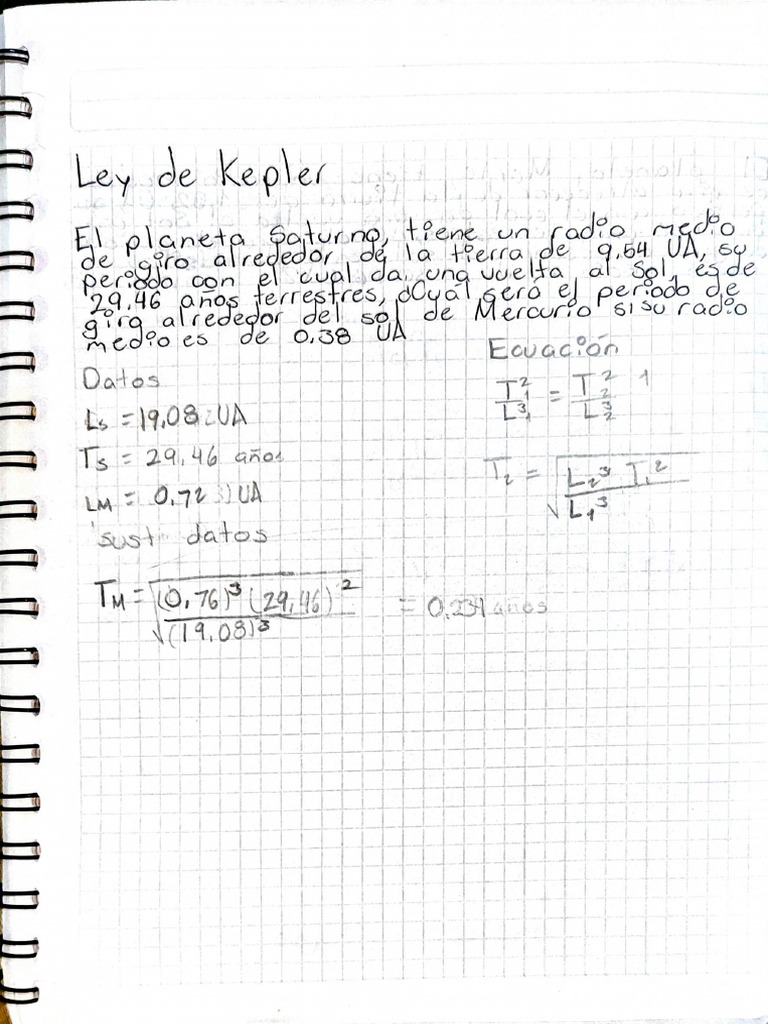 Ley de Kepler
El planeta Saturno, tiene un radio medio
de giro alrededor de la tierra de 9.54 UA, su
periodo con el cual da una vuelta al Sol, es de
29.46 años terrestres, ¿Cuál será el periodo de
giro alrededor del sol de Mercurio si su radio
medio es de 0.38 UA
Ecuación
Datos
T₁²/L₁³ = T₂²/L₂³
Ls = 19,08 UA
Ts = 29,46 años
T₂ = √(L₂³ T₁²/L₁³)
LM = 0.72 UA
sust datos
TM = √((0,76)³ (29,46)²/(19,08)³) = 0,234 años